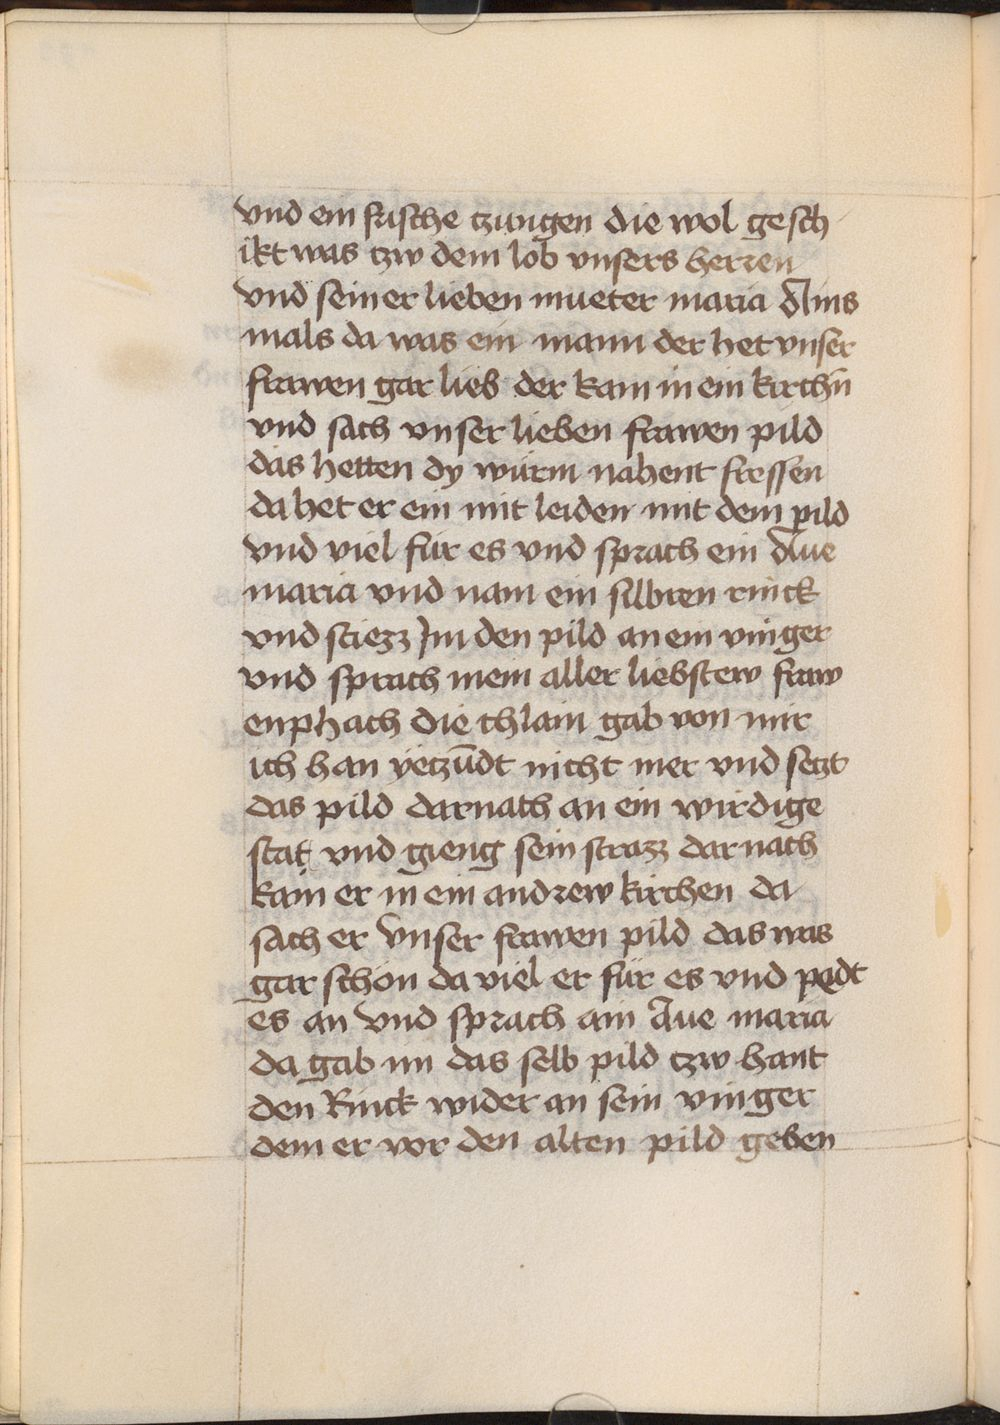 vnd ein frische tzungen die wol gesch
ikt was tzw dem lob vnsers herren
vnd seiner lieben mueter maria Ains
mals da was ein mann der het vnser
frawen gar lieb der kam in ein kirchn̄
vnd sach vnser lieben frawen pild
das hetten dy würm nahent fressen
da het er ein mit leiden mit dem pild
vnd viel für es vnd sprach ein Aue
maria vnd nam ein silbren rinck
vnd stiezz Im den pild an ein vinger
vnd sprach mein aller liebstew fraw
enphach die chlain gab von mir
ich han yetzūdt nicht mer vnd setzt
das pild darnach an ein wirdige
stat vnd gieng sein strazz dar nach
kam er in ein andrew kirchen da
sach er vnser frawen pild das was
gar schön da viel er für es vnd pedt
es an vnd sprach ain Aue maria
da gab im das selb pild tzw hant
den Rinck wider an sein vinger
dem er vor den alten pild geben